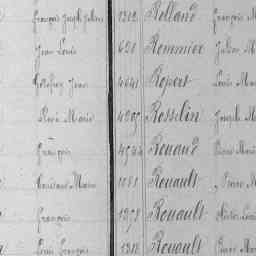 François Joseph Julien 1312 Rolland François M
Jean Louis 621 Rommier Julien M
Jean 4641 Ropert Louis Ma
René Marie Rosselin Joseph M
François Rouaud Pierre Mari
Marie 1081 Rouault Pierre M
François Rouault
Louis François 1312 Rouault Pierre Ma